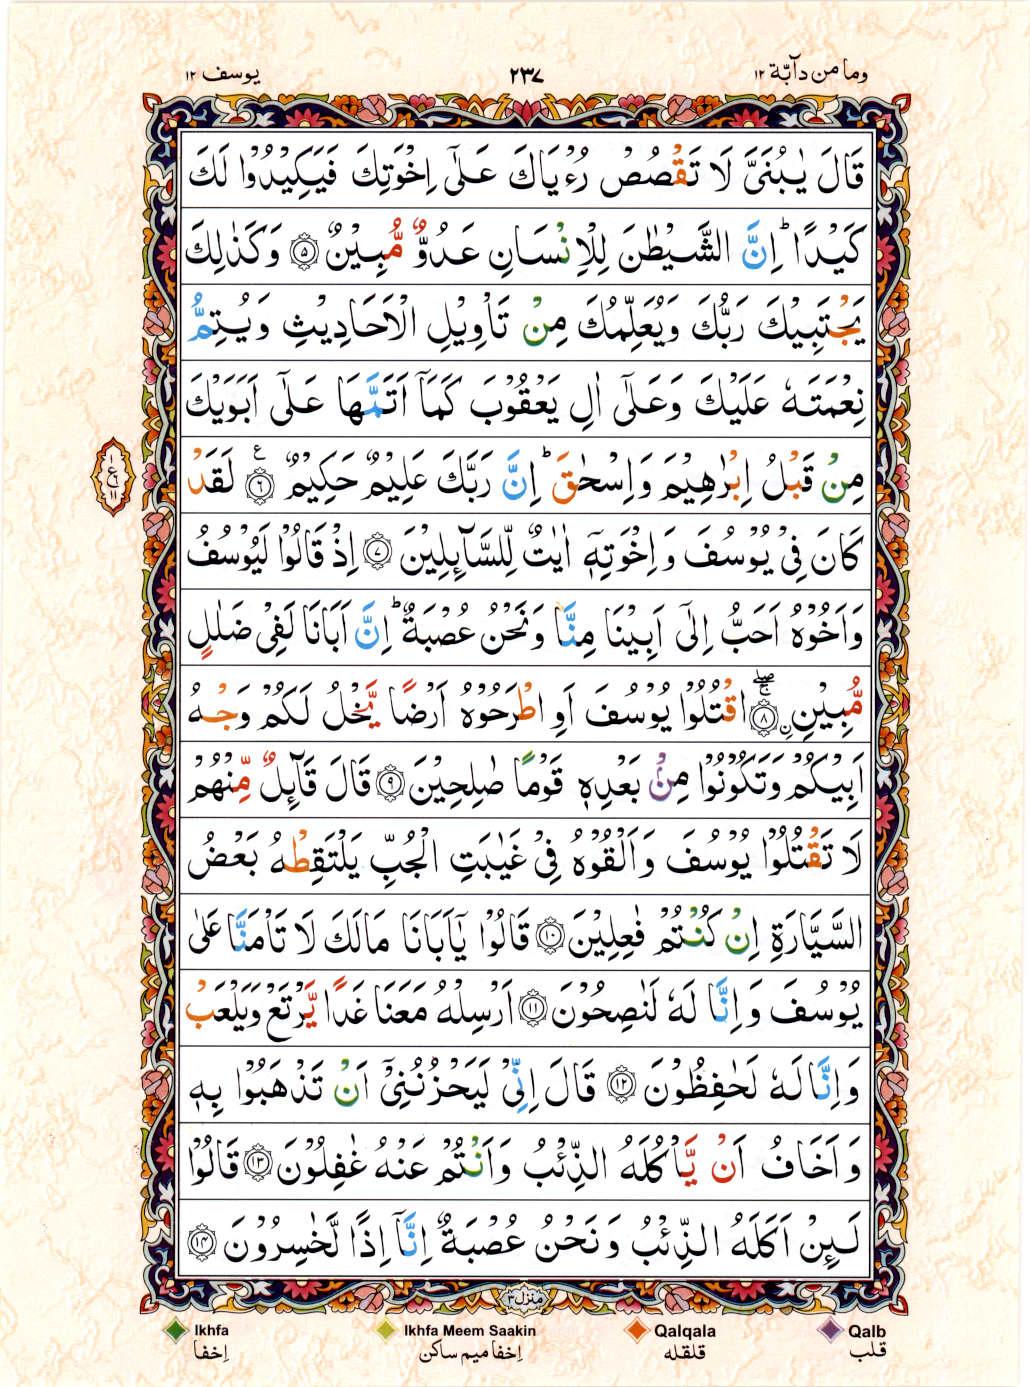 وما من دآبّة ١٢ ٢٣٧ يوسف ١٢
قَالَ يٰبُنَىَّ لَا تَقْصُصْ رُءْيَاكَ عَلٰٓى اِخْوَتِكَ فَيَكِيْدُوْا لَكَ
كَيْدًا ؕ اِنَّ الشَّيْطٰنَ لِلْاِنْسَانِ عَدُوٌّ مُّبِيْنٌ ۝۵ وَكَذٰلِكَ
يَجْتَبِيْكَ رَبُّكَ وَيُعَلِّمُكَ مِنْ تَاْوِيْلِ الْاَحَادِيْثِ وَيُتِمُّ
نِعْمَتَهٗ عَلَيْكَ وَعَلٰٓى اٰلِ يَعْقُوْبَ كَمَاۤ اَتَمَّهَا عَلٰٓى اَبَوَيْكَ
مِنْ قَبْلُ اِبْرٰهِيْمَ وَاِسْحٰقَ ؕ اِنَّ رَبَّكَ عَلِيْمٌ حَكِيْمٌ ۝۶ ع لَقَدْ
١ ع ٦ ١١
كَانَ فِىْ يُوْسُفَ وَاِخْوَتِهٖۤ اٰيٰتٌ لِّلسَّآئِلِيْنَ ۝۷ اِذْ قَالُوْا لَيُوْسُفُ
وَاَخُوْهُ اَحَبُّ اِلٰٓى اَبِيْنَا مِنَّا وَنَحْنُ عُصْبَةٌ ؕ اِنَّ اَبَانَا لَفِىْ ضَلٰلٍ
مُّبِيْنِ ۝۸ ۨاقْتُلُوْا يُوْسُفَ اَوِ اطْرَحُوْهُ اَرْضًا يَّخْلُ لَكُمْ وَجْهُ
اَبِيْكُمْ وَتَكُوْنُوْا مِنْۢ بَعْدِهٖ قَوْمًا صٰلِحِيْنَ ۝۹ قَالَ قَآئِلٌ مِّنْهُمْ
لَا تَقْتُلُوْا يُوْسُفَ وَاَلْقُوْهُ فِىْ غَيٰبَتِ الْجُبِّ يَلْتَقِطْهُ بَعْضُ
السَّيَّارَةِ اِنْ كُنْتُمْ فٰعِلِيْنَ ۝۱۰ قَالُوْا يٰۤاَبَانَا مَالَكَ لَا تَاْمَنَّا عَلٰى
يُوْسُفَ وَاِنَّا لَهٗ لَنٰصِحُوْنَ ۝۱۱ اَرْسِلْهُ مَعَنَا غَدًا يَّرْتَعْ وَيَلْعَبْ
وَاِنَّا لَهٗ لَحٰفِظُوْنَ ۝۱۲ قَالَ اِنِّىْ لَيَحْزُنُنِىْۤ اَنْ تَذْهَبُوْا بِهٖ
وَاَخَافُ اَنْ يَّاْكُلَهُ الذِّئْبُ وَاَنْتُمْ عَنْهُ غٰفِلُوْنَ ۝۱۳ قَالُوْا
لَئِنْ اَكَلَهُ الذِّئْبُ وَنَحْنُ عُصْبَةٌ اِنَّاۤ اِذًا لَّخٰسِرُوْنَ ۝۱۴
منزل ٣
Ikhfa Ikhfa Meem Saakin Qalqala Qalb
اِخفا اِخفا میم ساکن قلقله قلب